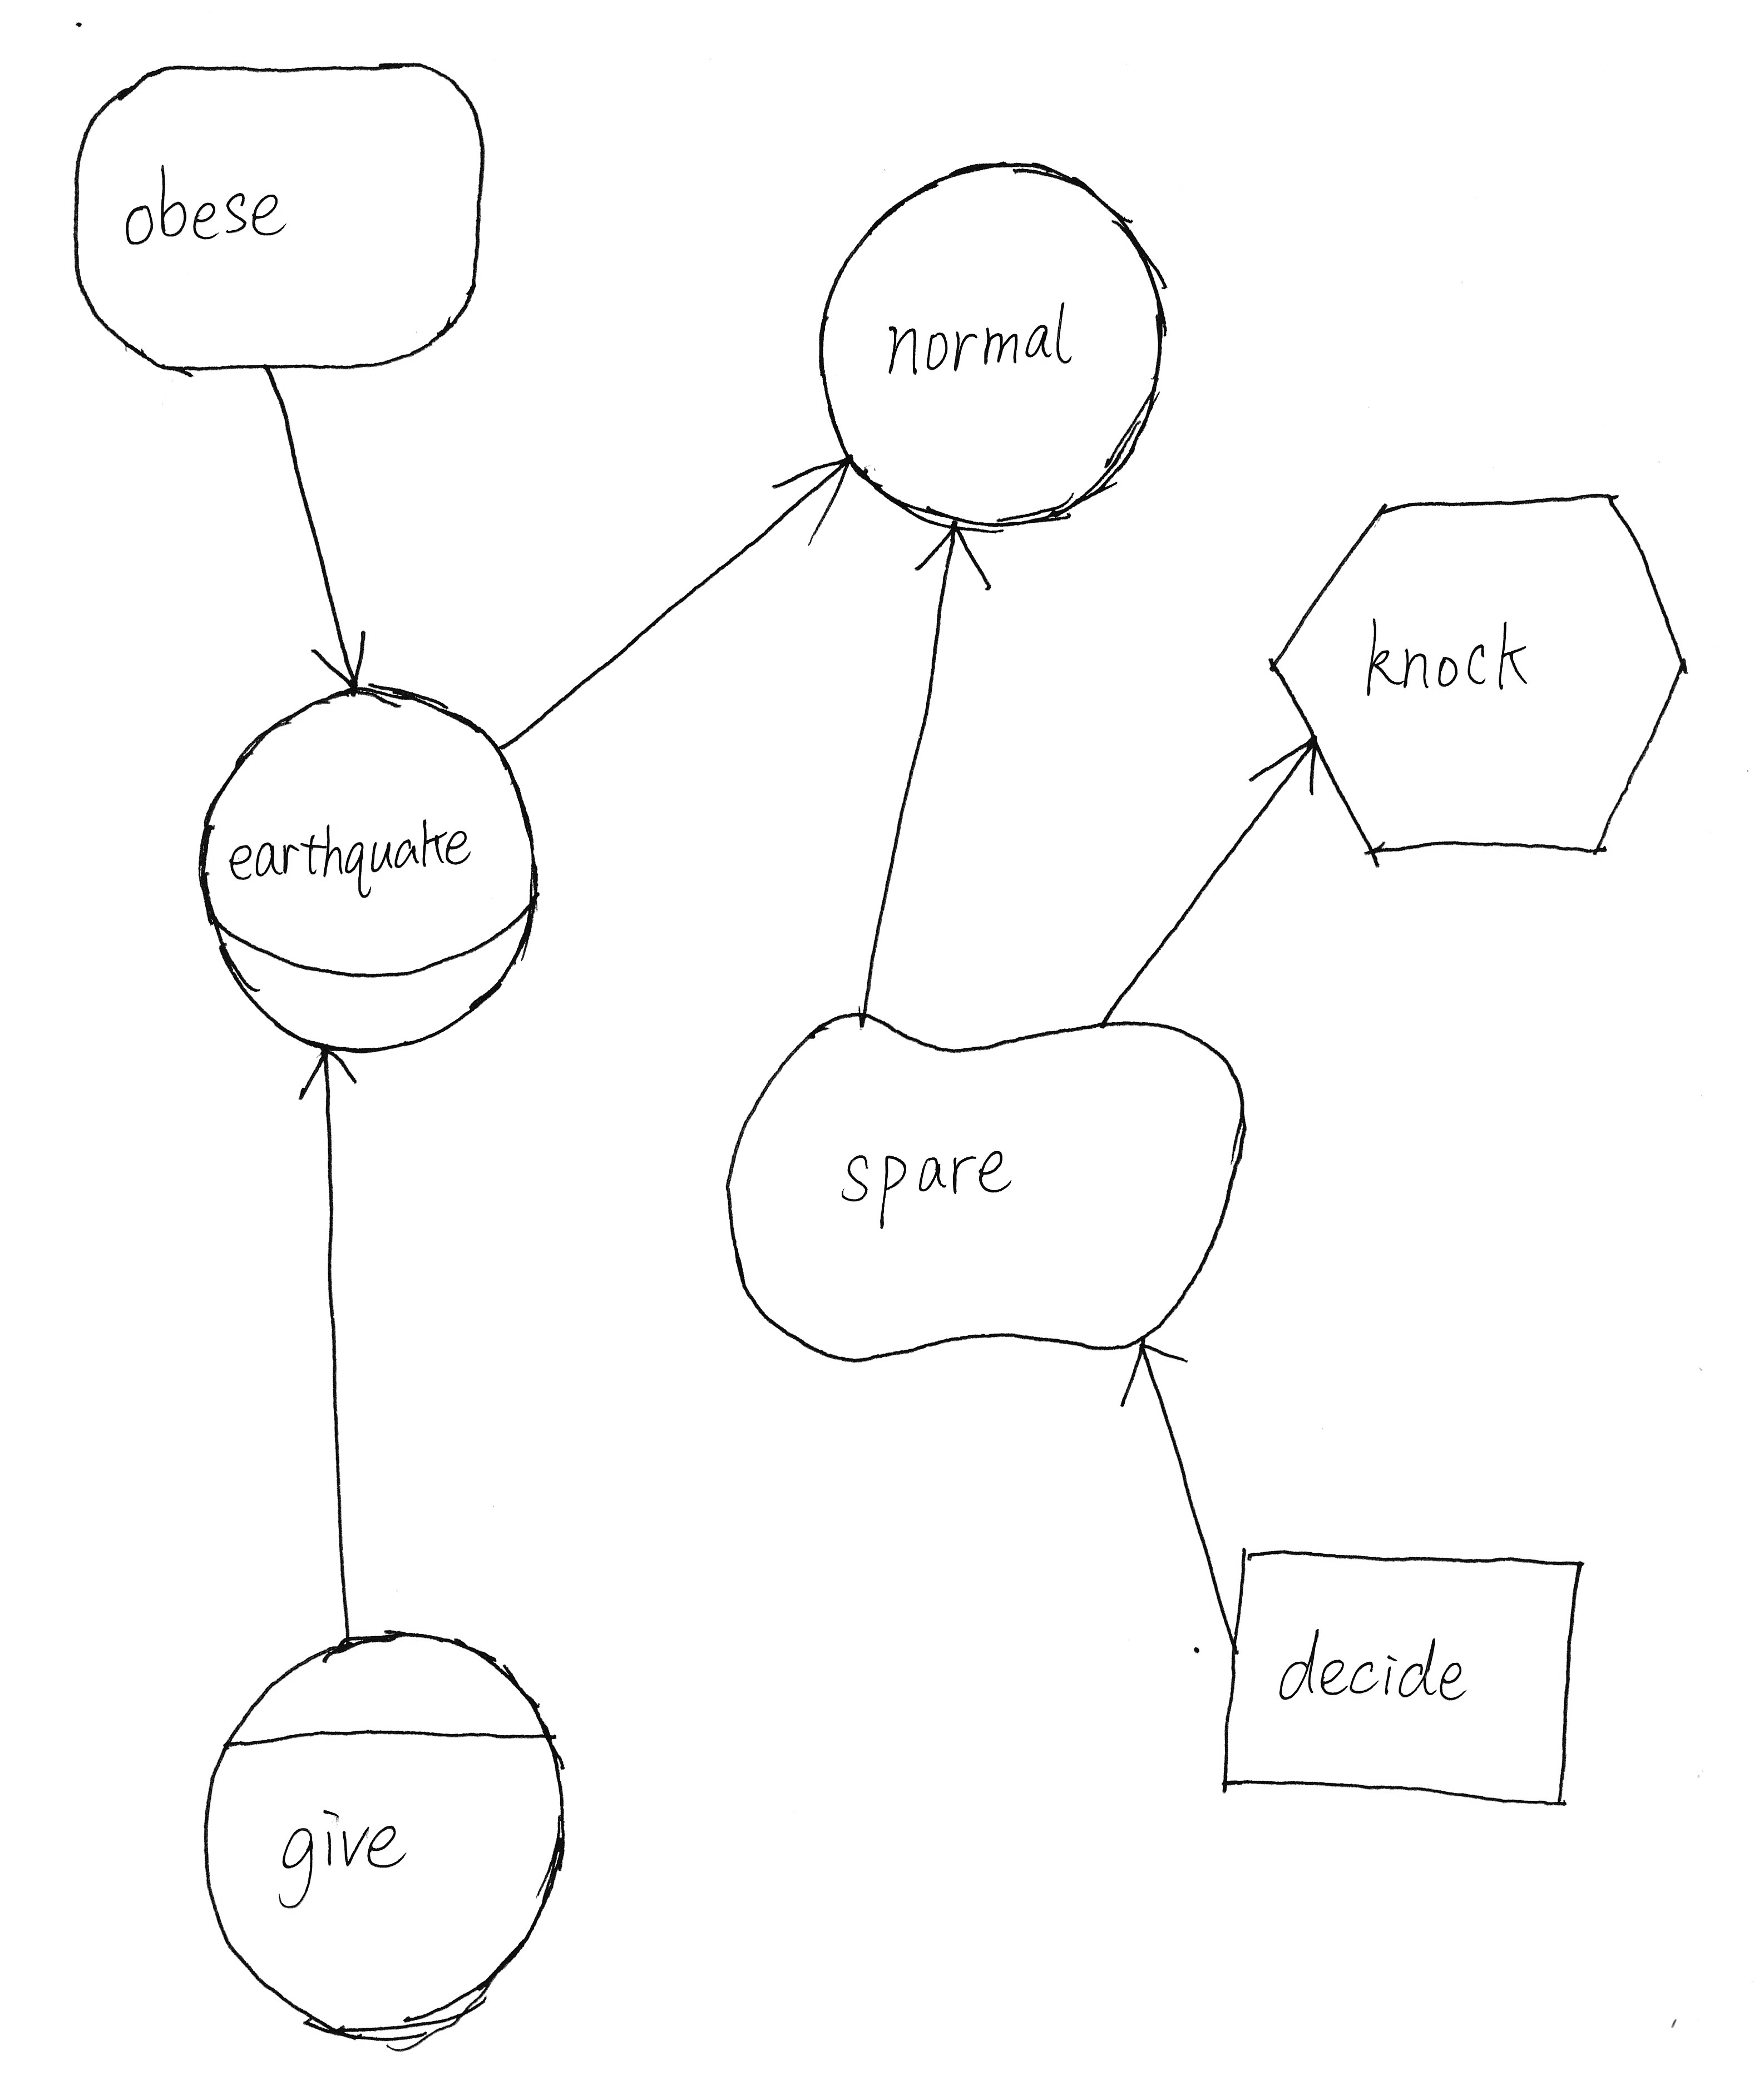 obese
normal
knock
earthquake
spare
decide
give